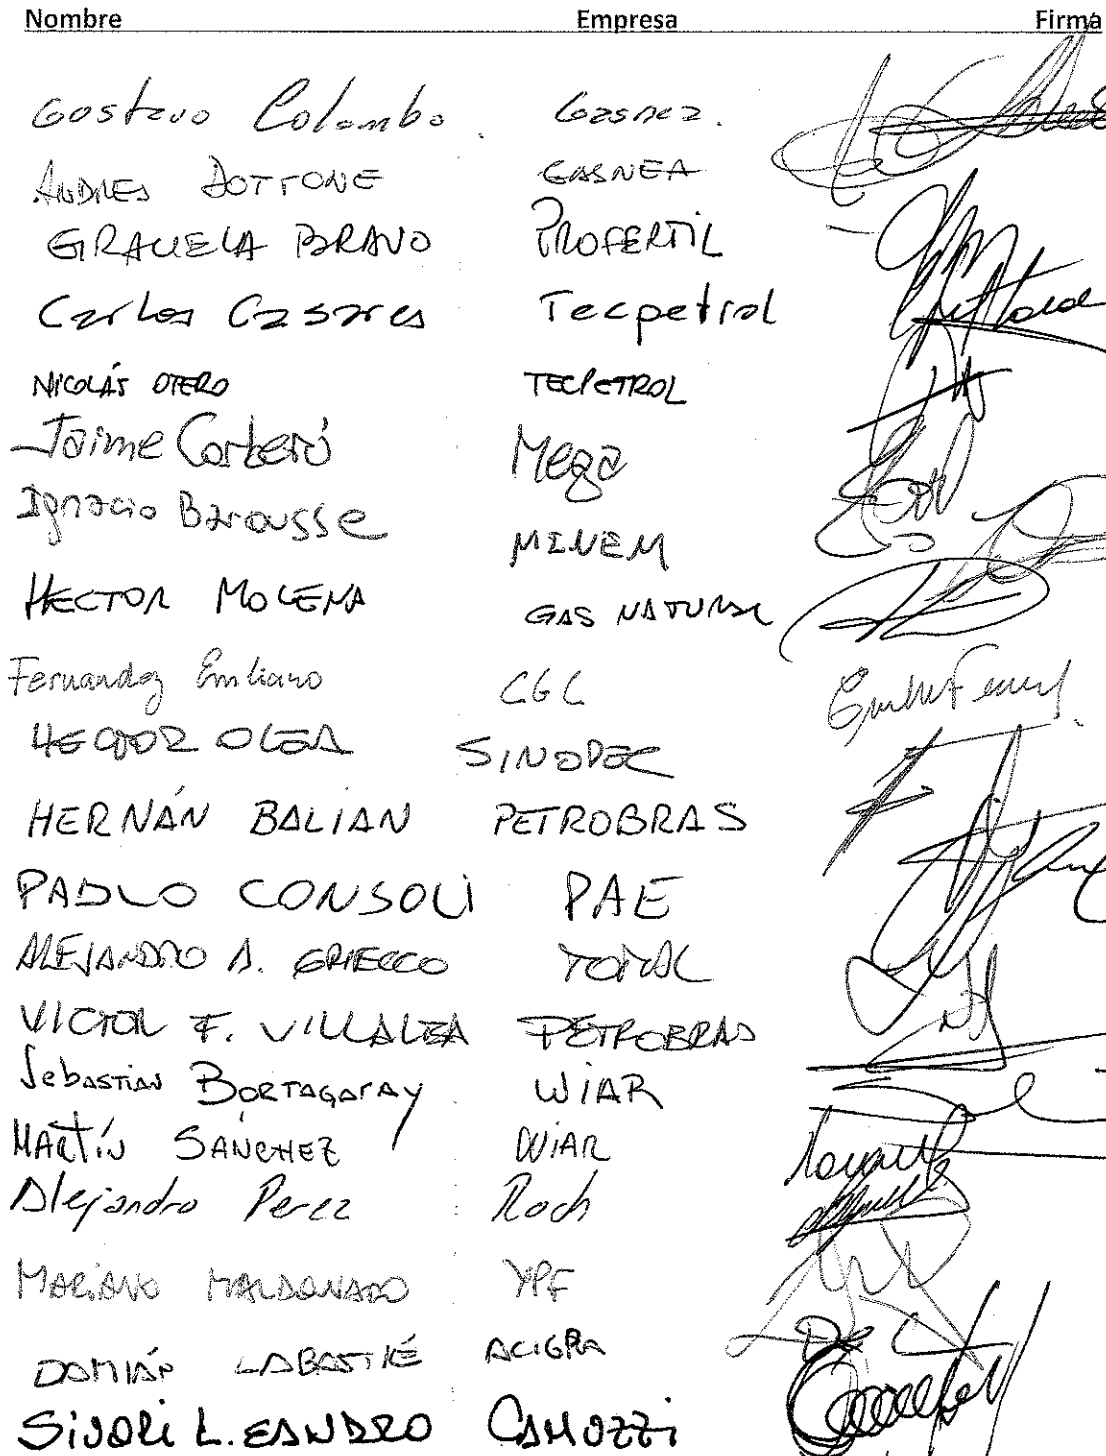 Nombre Empresa Firma
Gustavo Colombo. Gasnea.
ANDRES DOTTONE GASNEA
GRACIELA BRAVO PROFERTIL
Carlos Casares Tecpetrol
NICOLÁS OTERO TECPETROL
Jaime Barberó Mega
Ignacio Barousse MINEM
HECTOR MOLENA GAS NATURAL
Fernandez Emiliano CGC
HECTOR OLEA SINOPEC
HERNÁN BALIAN PETROBRAS
PABLO CONSOLI PAE
ALEJANDRO A. GRIECCO TOTAL
VICTOR F. VILLALBA PETROBRAS
Sebastian BORTAGARAY WIAR
MARTÍN SANCHEZ WIAR
Alejandro Perez Roch
MARIANO MALDONADO YPF
DAMIÁN LABASTIÉ ACIGRA
SIVORI LEANDRO CAMUZZI